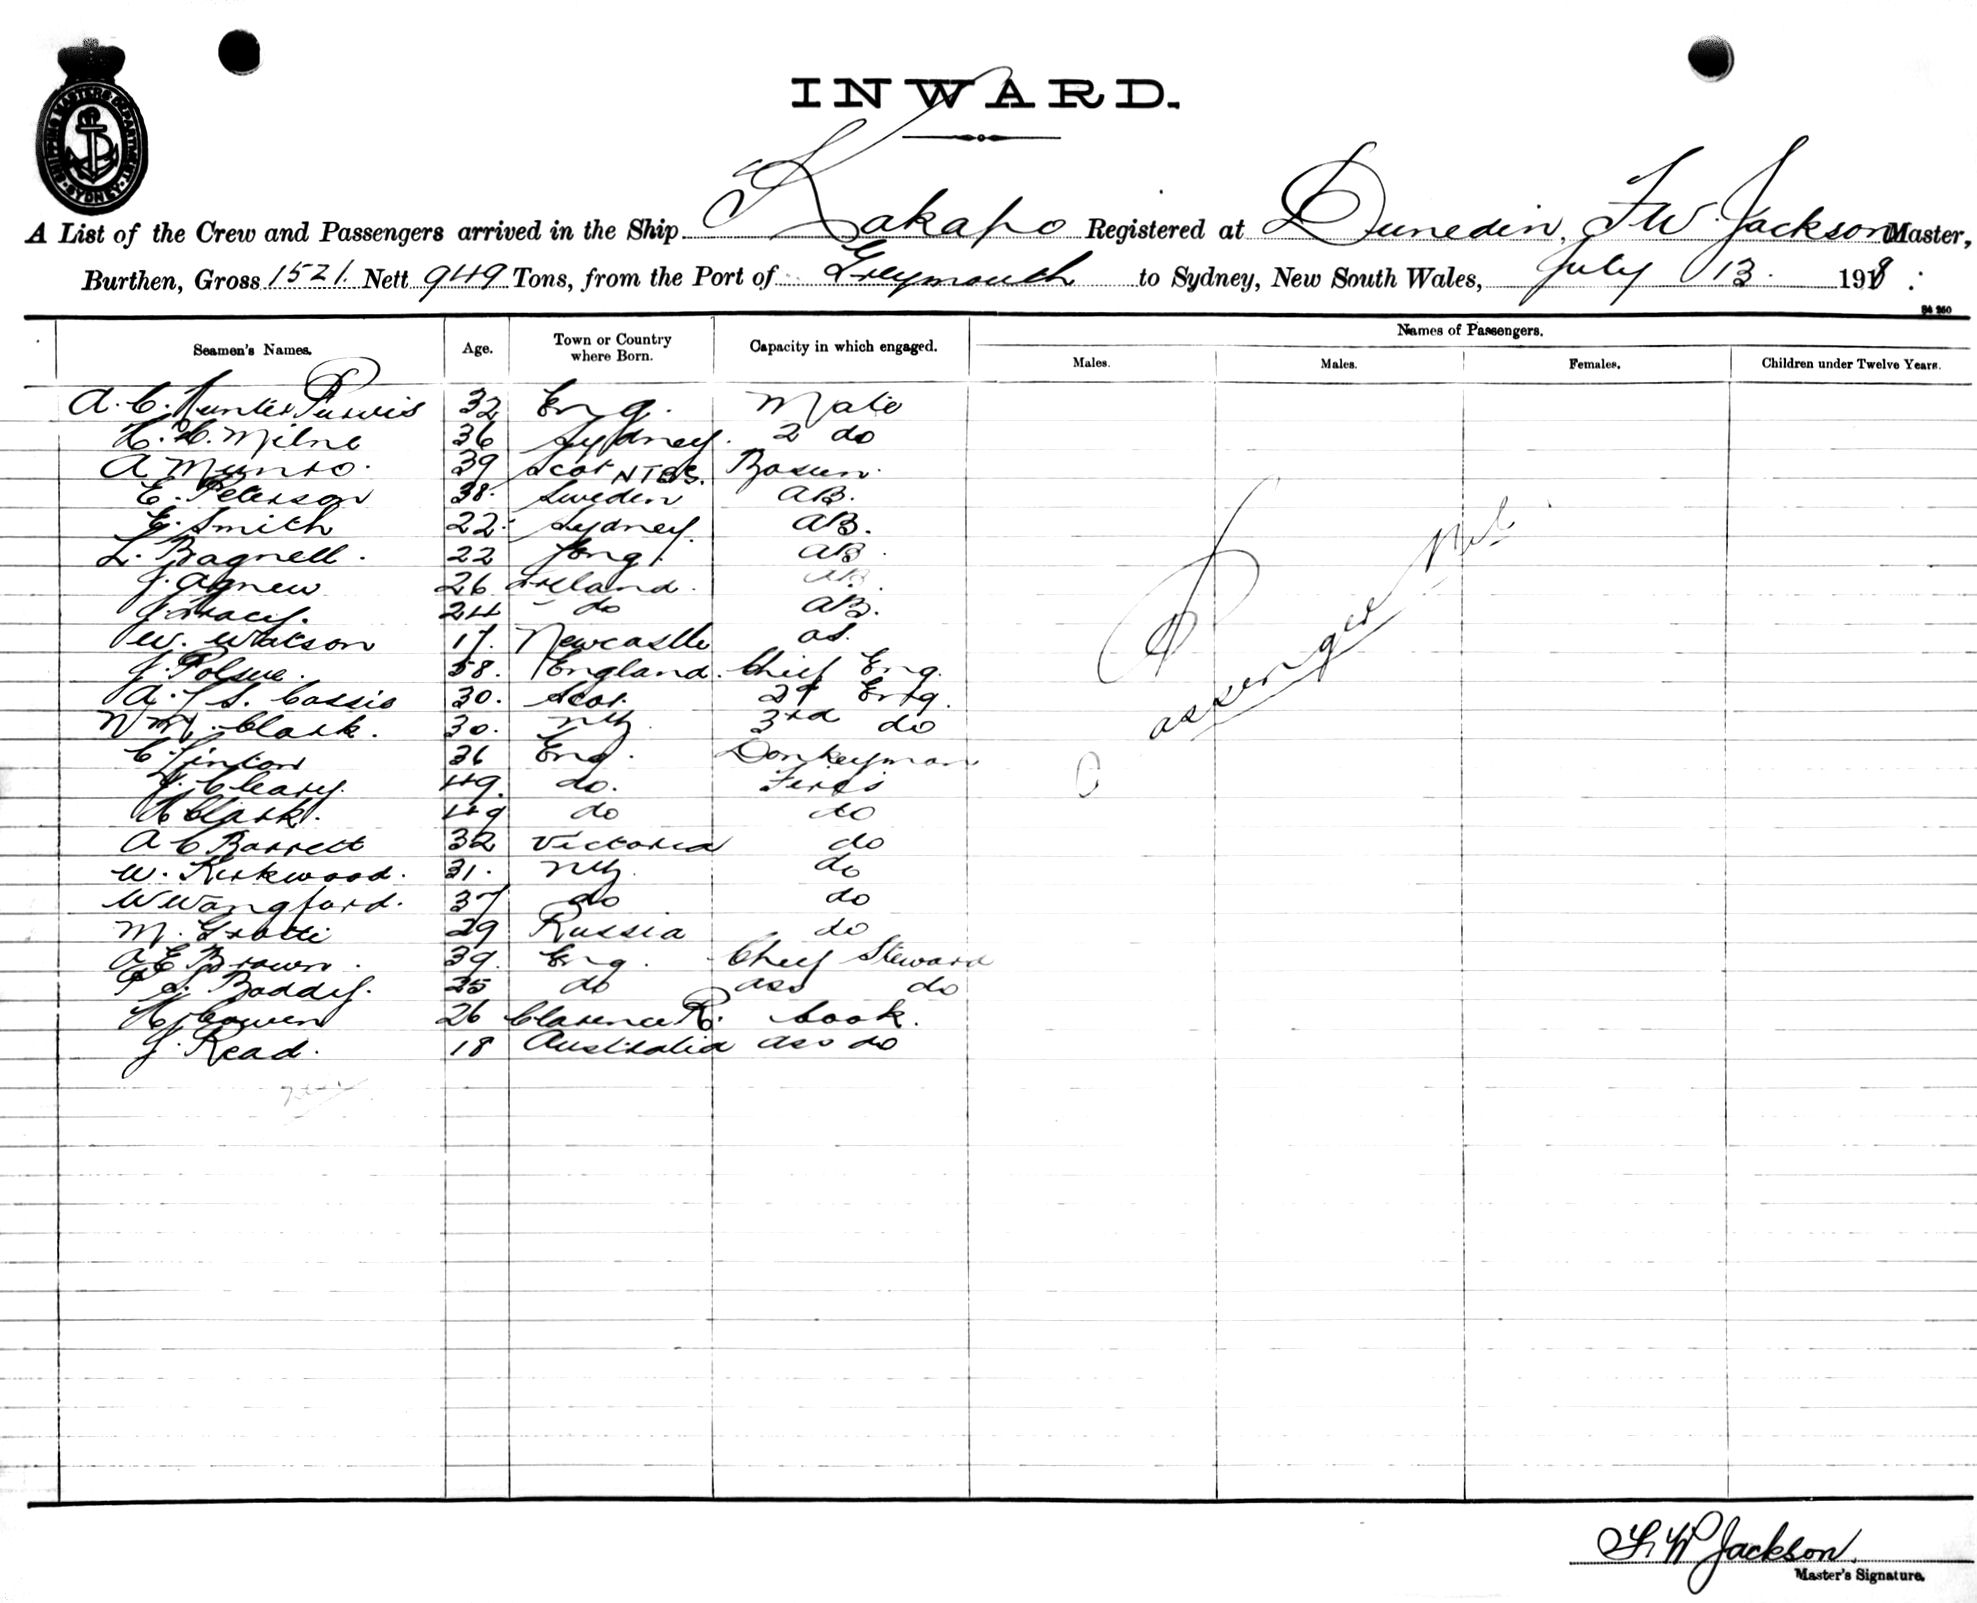 SHIPPING MASTERS DEPARTMENT SYDNEY
INWARD.
A List of the Crew and Passengers arrived in the Ship Kakapo Registered at Dunedin, F W. Jackson Master,
Burthen, Gross 1521. Nett 949 Tons, from the Port of Greymouth to Sydney, New South Wales, July 13. 1918:
Names of Passengers.
Seamen's Names. Age. Town or Country where Born. Capacity in which engaged. Males. Males. Females. Children under Twelve Years.
A. C. Hunter Purvis 32 Eng. Mate
H. H. Milne 36 Sydney. 2 do
A Munro. 39 Scot Bosun.
E. Peterson 38. Sweden AB.
E. Smith 22. Sydney. AB.
L. Bagnell. 22 Eng. AB.
J. Agnew 26 Ireland. AB.
J. Tracy. 24 do AB.
W. Watson 17. Newcastle os.
J. Polsue. 58. England. Chief Eng.
A. S. Cassis 30. Scot. 2d Eng.
Clark. 30. NZ 3rd do
C. Linton 36 Eng. Donkeyman
Cleary. 49. do. Firs
H Clark. 49 do do
A C Barrett 32 Victoria do
W. Kirkwood. 31. NZ. do
W Wangford. 37 do do
M. 29 Russia do
A E Brown. 39. Eng. Chief Steward
Boddy. 25 do ass do
H. Cowen 26 Clarence R. Cook.
J. Read. 18 Australia ass do
Passengers Nil
F. W Jackson.
Master's Signature.